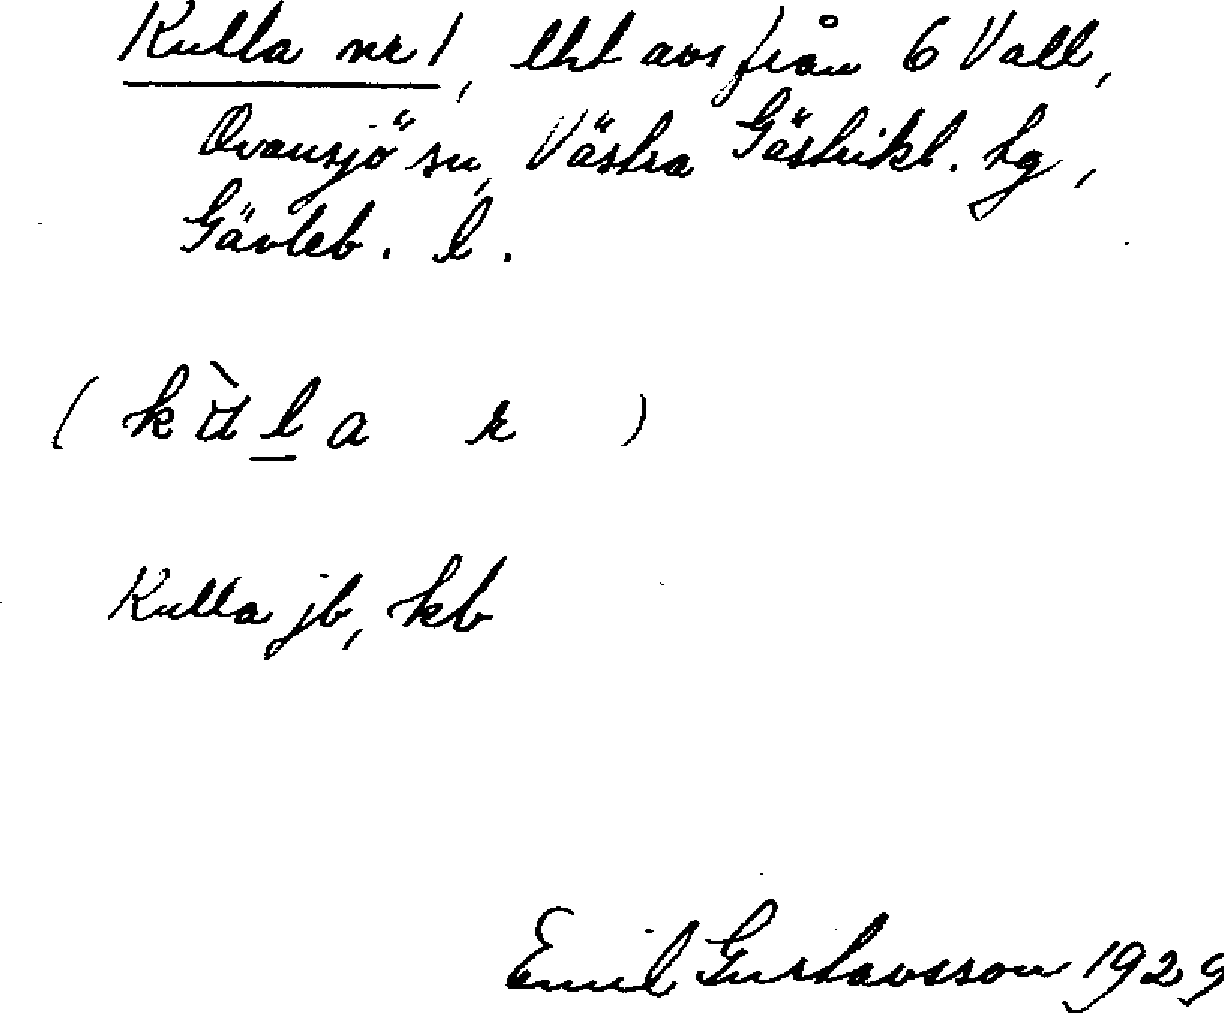 Kulla nr 1, lht avs från 6 Vall,
Ovansjö sn, Västra Gästrikl. tg,
Gävleb. l.
( k l a r )
Kulla jb, kb
Emil Gustavsson 1929